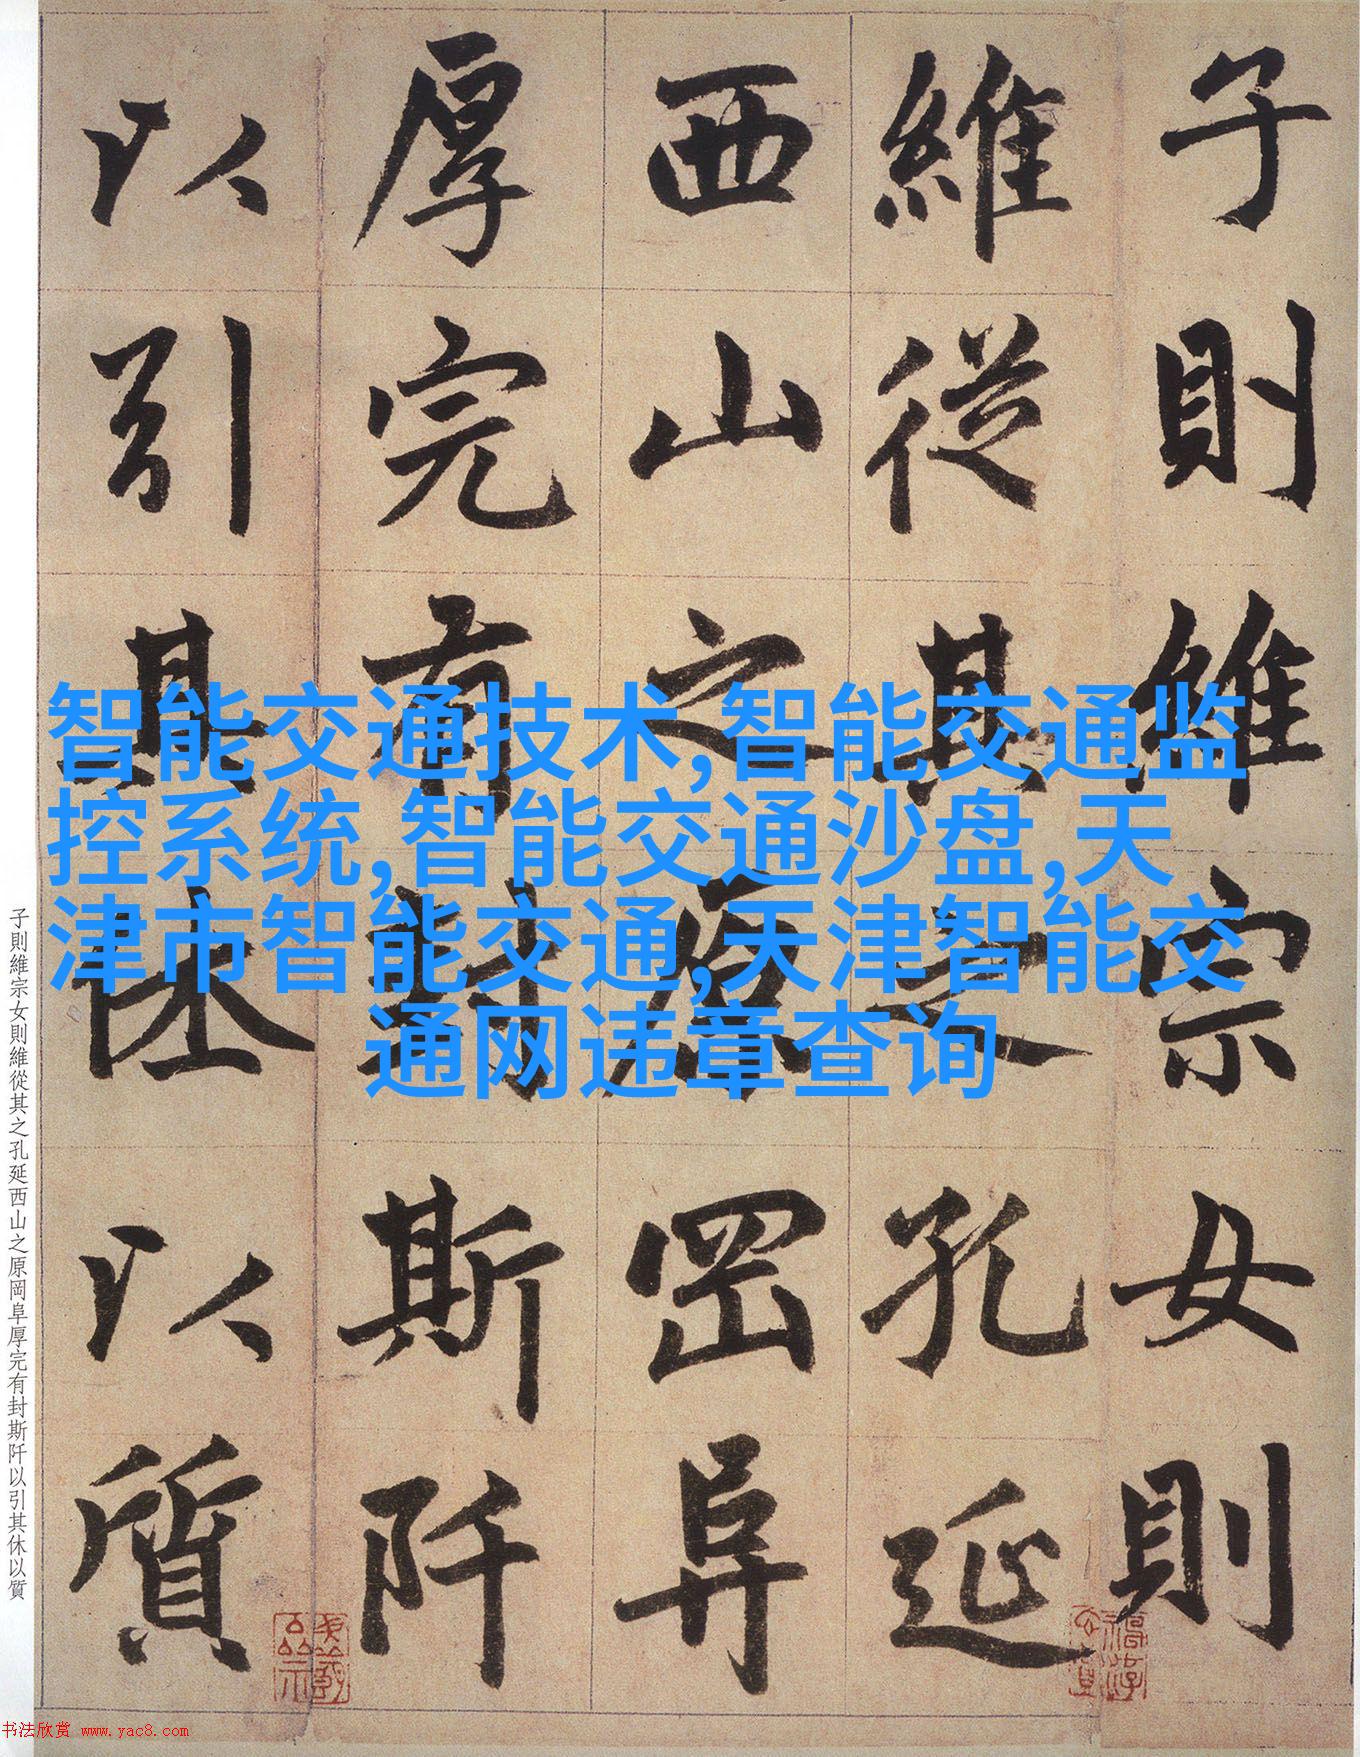 子則維宗女則
維從其之孔延
西山之原岡阜
厚完有封斯阡
以引其休以質
智能交通技术,智能交通监
控系统,智能交通沙盘,天
津市智能交通,天津智能交
通网违章查询
子則維宗女則維從其之孔延西山之原岡阜厚完有封斯阡以引其休以質
书法欣赏 www.yac8.com